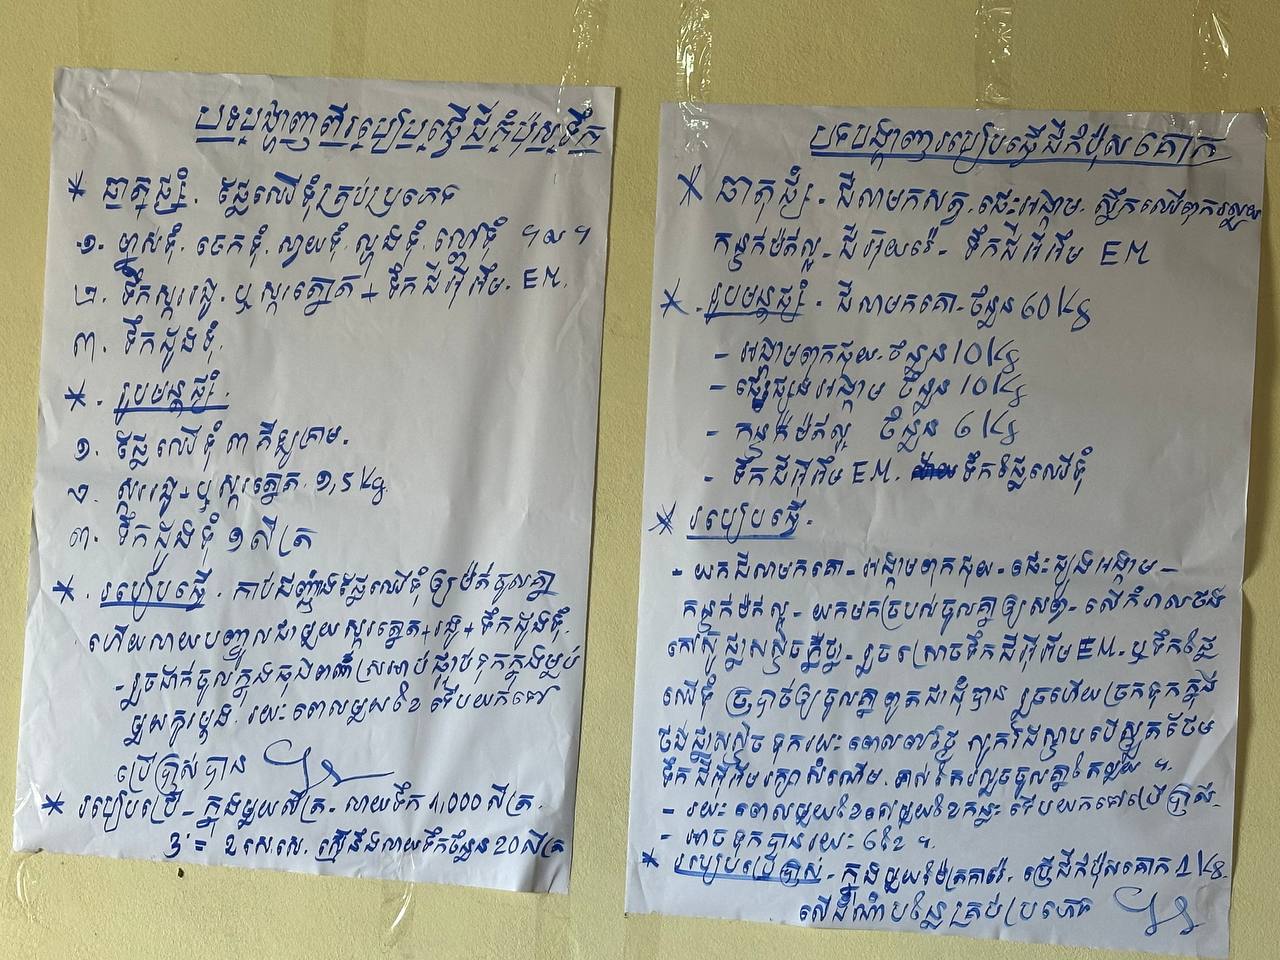 បទបង្ហាញពីរបៀបធ្វើជីកំប៉ុសទឹក
* ធាតុផ្សំ. ផ្លែឈើទុំគ្រប់ប្រភេទ
១. ម្នាស់ទុំ. ចេកទុំ. ស្វាយទុំ. ល្ហុងទុំ. ល្មៅទុំ ។ល។
២. ទឹកស្ករអំពៅ. ឬ ស្ករត្នោត + ទឹកជីអ៊ីអឹម. EM.
៣. ទឹកដូងទុំ.
* . រូបមន្តផ្សំ.
១. ផ្លែឈើទុំ ៣ គីឡូក្រាម.
២. ស្ករអំពៅ + ឬស្ករត្នោត. ១,5 kg.
៣. ទឹកដូងទុំ ១ លីត្រ
* . របៀបធ្វើ. កាប់ចិញ្ច្រាំផ្លែឈើទុំឲ្យម៉ត់ចូលគ្នា
ហើយលាយបញ្ចូលជាមួយស្ករត្នោត + អំពៅ + ទឹកដូងទុំ.
- រួចដាក់ចូលក្នុងធុង ស្រអាប់ផ្អាប់ទុកក្នុងម្លប់
ឬ រយៈពេលមួយខែ ទើបយកទៅ
ប្រើប្រាស់បាន
* របៀបប្រើ - ក្នុងមួយលីត្រ - លាយទឹក 1,000 លីត្រ.
3 = ២ សេ.សេ. ស្មើនឹងលាយទឹកចំនួន 20 លីត្រ
បទបង្ហាញរបៀបធ្វើជីកំប៉ុសគោក
* ធាតុផ្សំ - ជីលាមកសត្វ. ផេះអង្កាម. ស្លឹកឈើពុករលួយ
កន្ទក់ម៉ត់ល្អ - ជីអ៊ុយរ៉េ - ទឹកជីអ៊ីអឹម EM
* . រូបមន្តផ្សំ - ជីលាមកគោ - ចំនួន 60 kg
- អង្កាមពុកផុយ. ចំនួន 10 kg
- ផេះឆ្អឹងអង្កាម ចំនួន 10 kg
- កន្ទក់ម៉ត់ល្អ ចំនួន 6 kg
- ទឹកជីអ៊ីអឹម EM. ទឹកផ្លែឈើទុំ
* របៀបធ្វើ.
- យកជីលាមកគោ - អង្កាមពុកផុយ - ផេះធ្យូងអង្កាម -
កន្ទក់ម៉ត់ល្អ - យកមកច្របល់ចូលគ្នាឲ្យសព្វ - លើកម្រាលថង់
កៅស៊ូ រួចស្រោចទឹកជីអ៊ីអឹម EM. ឬ ទឹកផ្លែ
ឈើទុំ ច្របាច់ឲ្យចូលគ្នាពូតជាដុំបាន រួចហើយច្រកទុកក្នុង
ថង់ ទុករយៈពេល៣ថ្ងៃ បើស្ងួតថែម
ទឹកជីអ៊ីអឹមរក្សាសំណើម. ។
- រយៈពេលមួយខែទៅមួយខែកន្លះ ទើបយកទៅប្រើប្រាស់.
- អាចទុកបានរយៈ 6 ខែ ។
* របៀបប្រើប្រាស់ - ក្នុងមួយម៉ែត្រការ៉េ - ប្រើជីកំប៉ុសគោក 1 kg.
លើដំណាំបន្លែគ្រប់ប្រភេទ